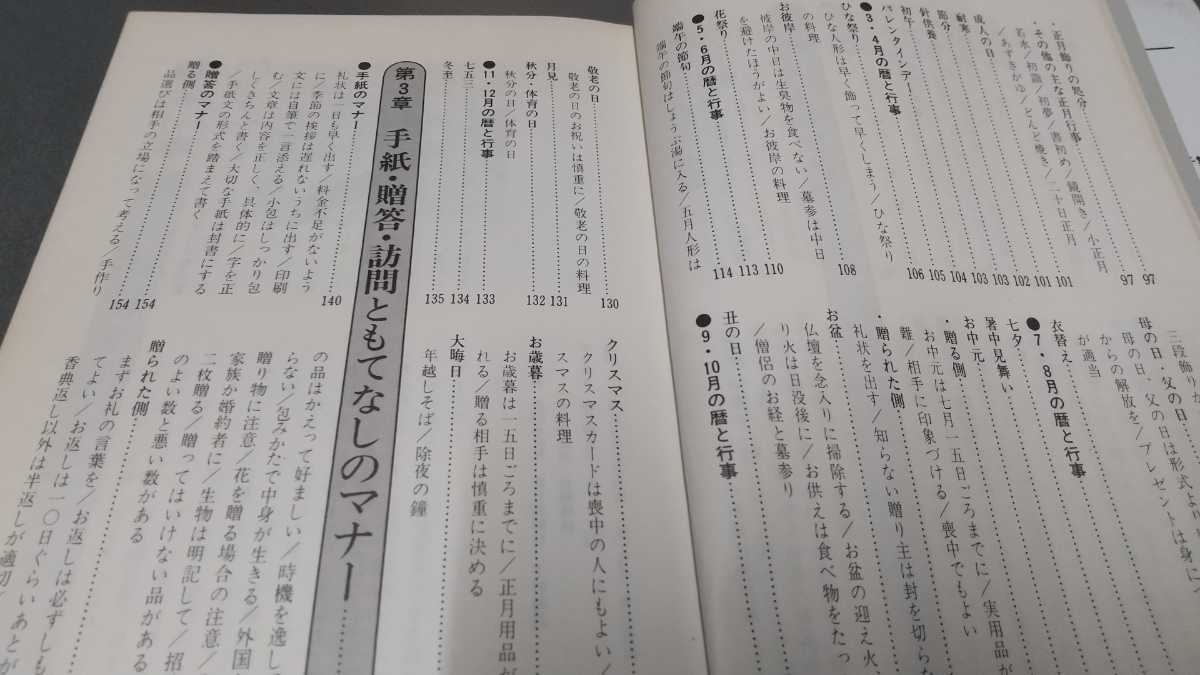 ・正月飾りの処分 97
・その他の主な正月行事 97
若水／初詣／初夢／書初め／鏡開き／小正月
／あずきがゆ／どんど焼き／二十日正月
成人の日 101
耐寒 101
節分 102
針供養 103
初午 103
バレンタインデー 104
●3・4月の暦と行事 105
ひな祭り 106
ひな人形は早く飾って早くしまう／ひな祭り
の料理
お彼岸 108
彼岸の中日は生臭物を食べない／墓参は中日
を避けたほうがよい／お彼岸の料理
花祭り 110
●5・6月の暦と行事 113
端午の節句 114
端午の節句はしょうぶ湯に入る／五月人形は
三段飾りが
母の日・父の日
母の日、父の日は形式より
からの解放を／プレゼントは身に
が適当
衣替え
●7・8月の暦と行事
七夕
暑中見舞い
お中元
・贈る側
お中元は七月一五日ごろまでに／実用品が
難／相手に印象づける／喪中でもよい
・贈られた側
礼状を出す／知らない贈り主は封を切らな
お盆
仏壇を念入りに掃除する／お盆の迎え火
り火は日没後に／お供えは食べ物をたっ
／僧侶のお経と墓参り
丑の日
●9・10月の暦と行事
敬老の日 130
敬老の日のお祝いは慎重に／敬老の日の料理
月見 131
秋分・体育の日 132
秋分の日／体育の日
●11・12月の暦と行事 133
七五三 134
冬至 135
クリスマス
クリスマスカードは喪中の人にもよい／
スマスの料理
お歳暮
お歳暮は一五日ごろまでに／正月用品が
れる／贈る相手は慎重に決める
大晦日
年越しそば／除夜の鐘
第3章 手紙・贈答・訪問ともてなしのマナー
●手紙のマナー 140
礼状は一日も早く出す／料金不足がないよう
に／季節の挨拶は遅れないうちに出す／印刷
文には自筆で一言添える／小包はしっかり包
む／文章は内容を正しく、具体的に／字を正
しくきちんと書く／大切な手紙は封書にする
／手紙文の形式を踏まえて書く
●贈答のマナー 154
贈る側 154
品選びは相手の立場になって考える／手作り
の品はかえって好ましい／時機を逸し
らない／包みかたで中身が生きる／外国
贈り物に注意／花を贈る場合の注意／
家族か婚約者に／生物は明記して／招
二枚贈る／贈ってはいけない品がある
のよい数と悪い数がある
贈られた側
まずお礼の言葉を／お返しは必ずしも
てよい／お返しは一〇日ぐらいあとが
香典返し以外は半返しが適切／